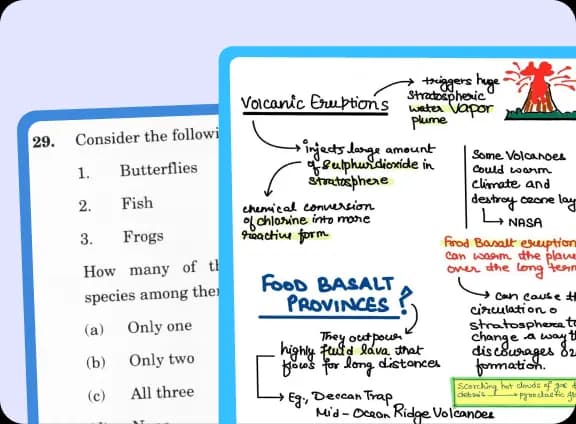 29. Consider the followi
1. Butterflies
2. Fish
3. Frogs
How many of th
species among the
(a) Only one
(b) Only two
(c) All three
Volcanic Eruptions
triggers huge
stratospheric
water vapor
plume
injects large amount
of sulphurdioxide in
stratosphere
chemical conversion
of chlorine into more
reactive form
Some Volcanoes
could warm
climate and
destroy ozone lay
NASA
Flood Basalt eruption
can warm the plane
over the long term
FLOOD BASALT
PROVINCES?
can cause th
circulation o
stratosphere to
change a way th
discourages oz
formation.
They outpour
highly fluid lava that
flows for long distances
Eg., Deccan Trap
Mid-Ocean Ridge Volcanoes
Scorching hot clouds of gas
debris pyroclastic